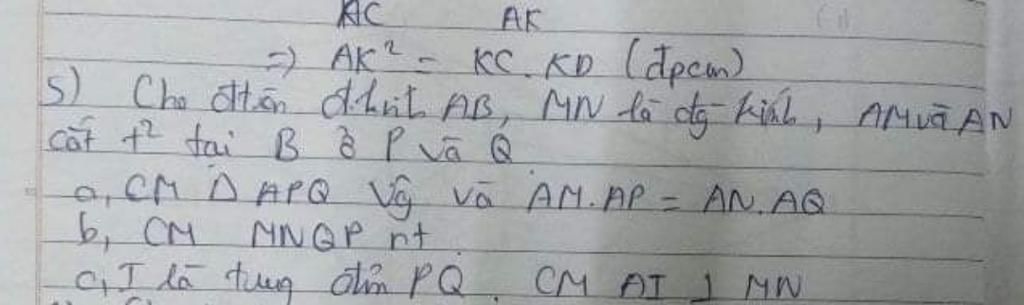 AC AK
=> AK² = KC. KD (đpcm)
5) Cho đtròn đkính AB, MN là đg kính, AM và AN
cắt t² tại B ở P và Q
a, CM Δ APQ Vg và AM.AP = AN.AQ
b, CM MNQP nt
c, I là trung điểm PQ. CM AI ⊥ MN